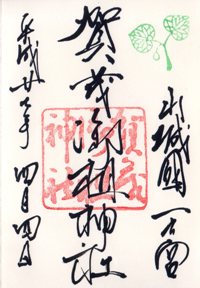 山城國 一之宮
賀茂御祖神社
平成廿七年 四月四日
賀茂
御祖
神社